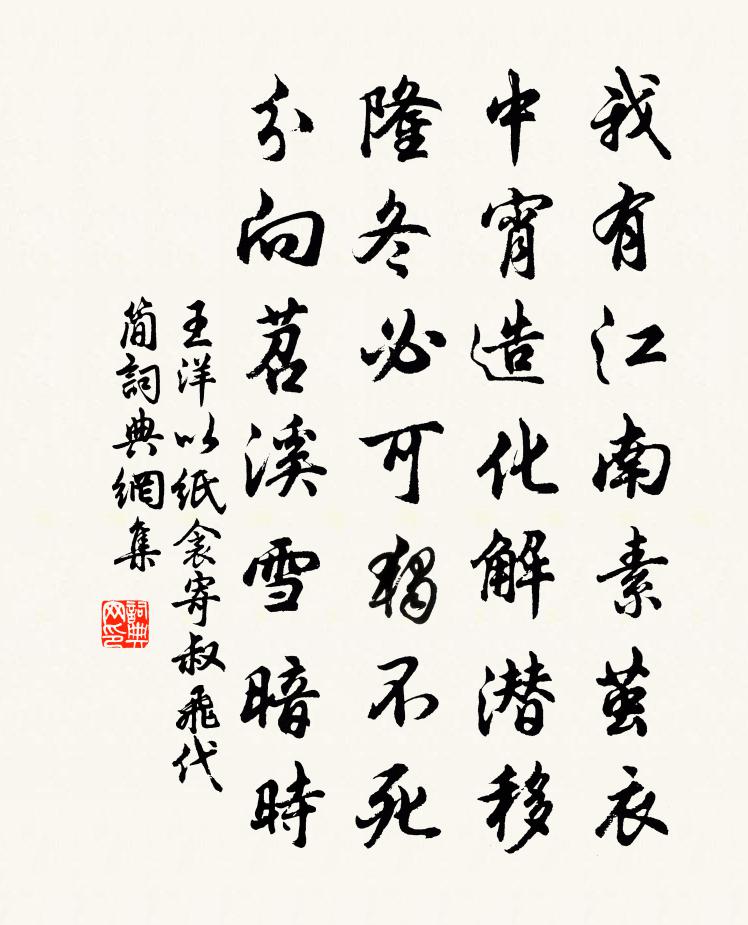 我有江南素茧衣
中宵造化解潜移
隆冬必可独不死
分向苕溪雪暗时
王洋以紙衾寄叔飛代
簡詞典網集
詞典网印